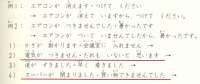 例1： エアコンが 消えます・つけて ください。
→ エアコンが 消えて いますから、つけて ください。
例2： エアコンが つきませんでした・暑かったです
→ エアコンが ついて いませんでしたから、暑かったです。
1） かぎが 掛かります・会議室に 入れません →
2） 電気が つきません・だれも いないと 思います →
3） 道が すきました・早く 着きました →
4） スーパーが 閉まりました・買い物できませんでした →